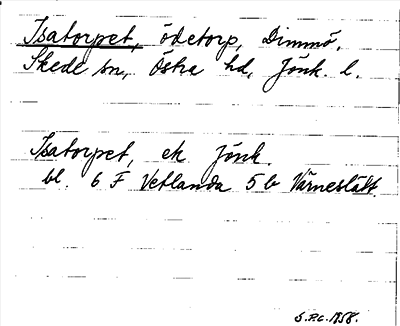 Isatorpet, ödetorp, Dimmö,
Skede sn, Östra hd, Jönk. l.
Isatorpet, ek Jönk.
bl. 6 F Vetlanda 5 b Värneslätt.
S.P.G. 1958.